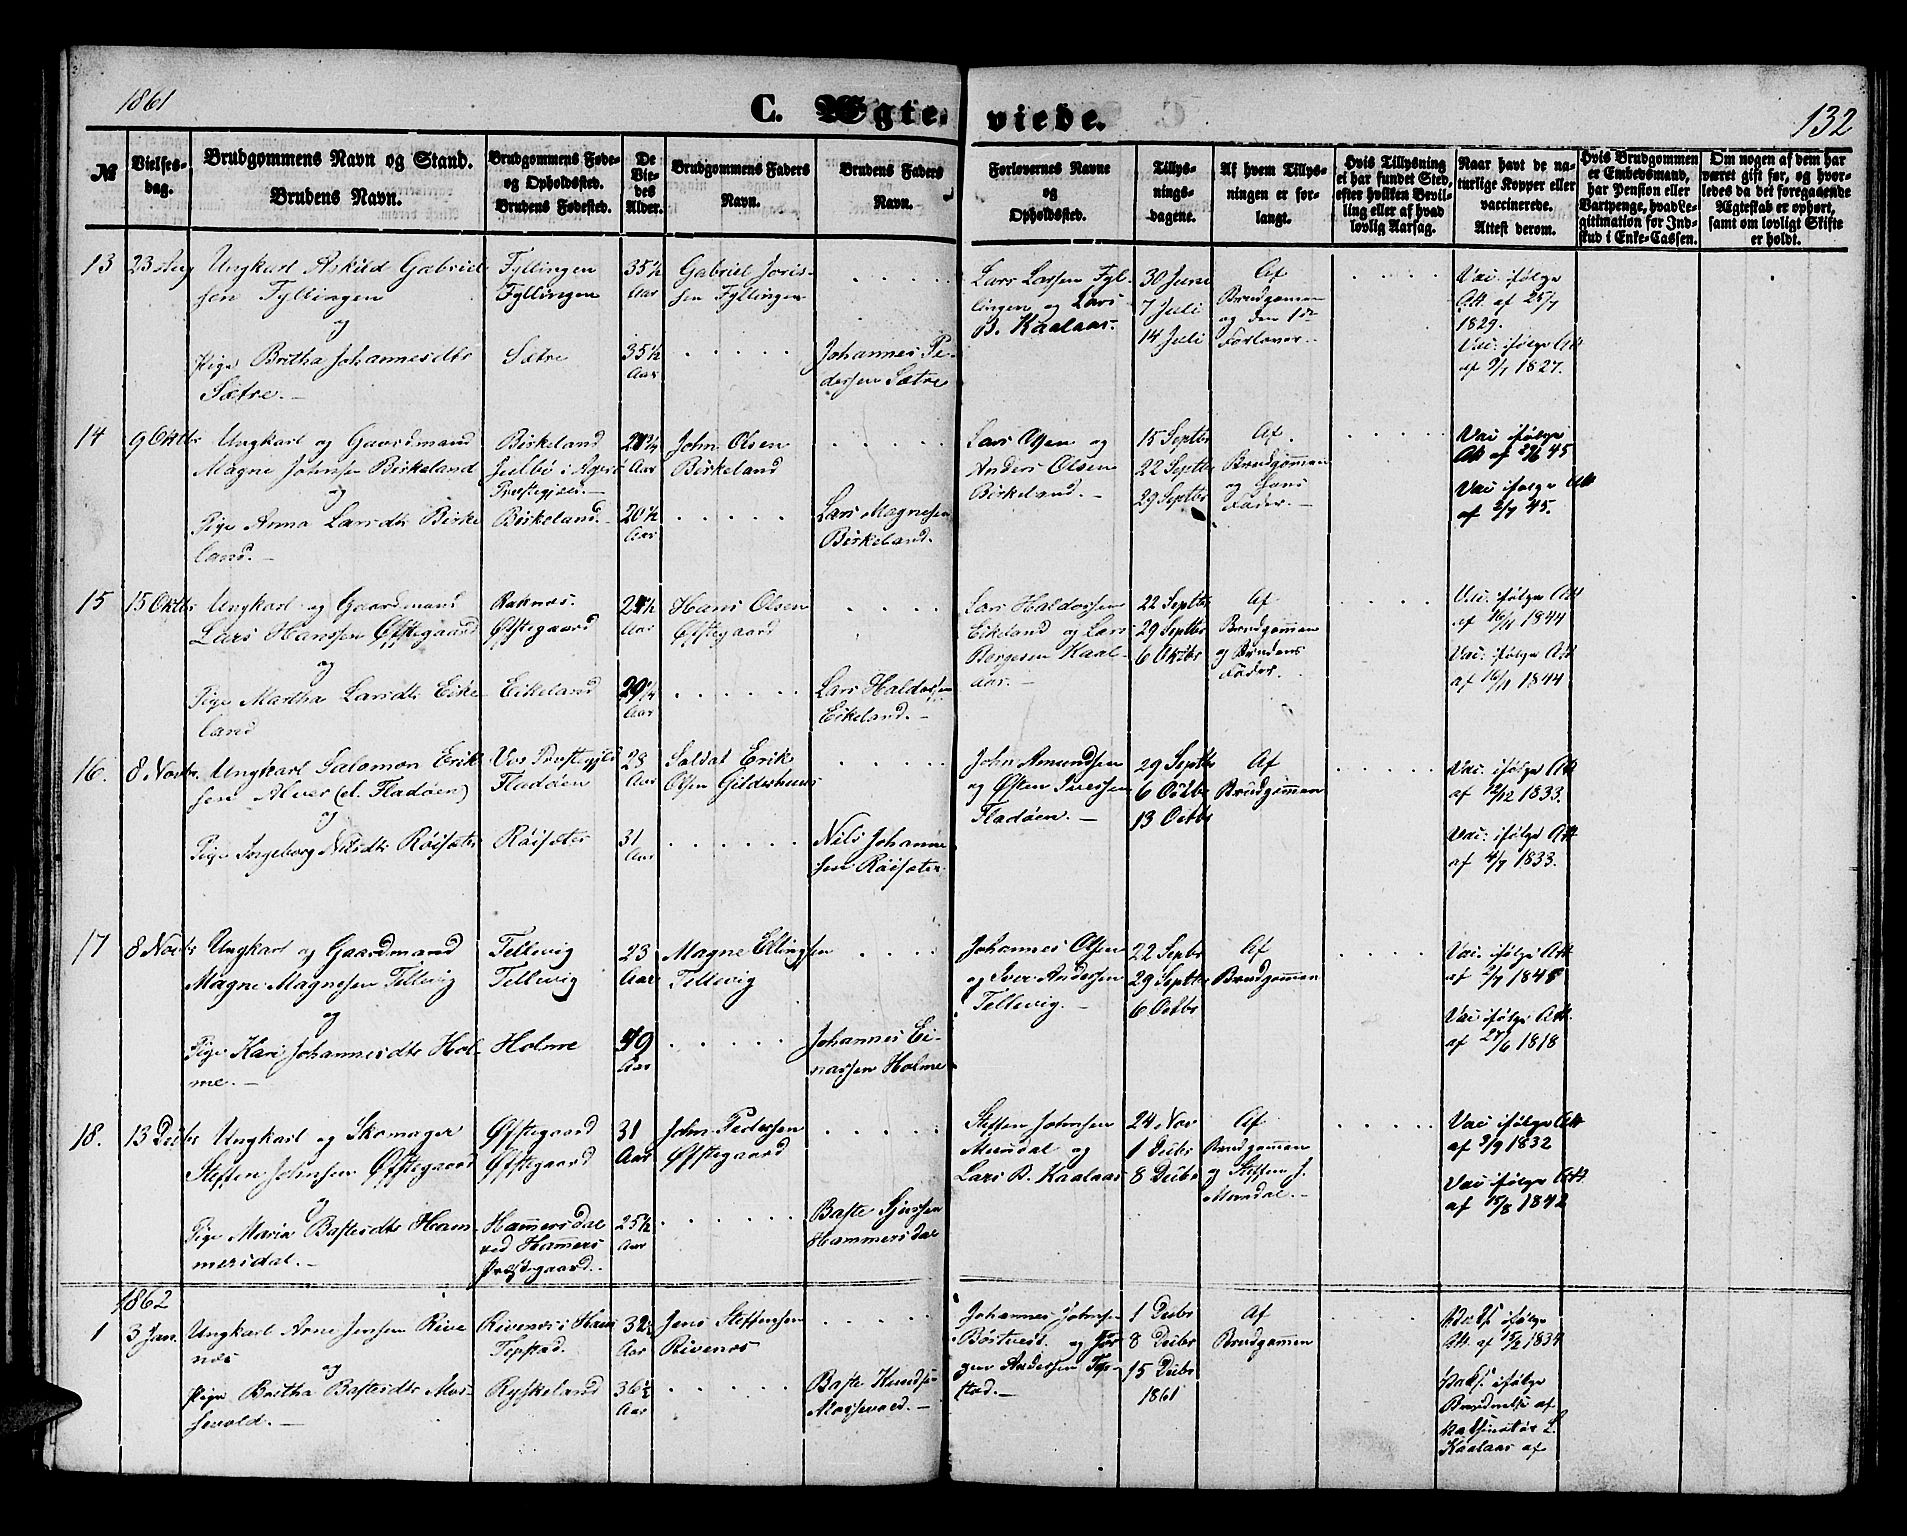 1861
C. Ægte-
viede.
132
№
Vielses-
dag.
Brudgommens Navn og Stand.
Brudens Navn.
Brudgommens Føde-
og Opholdssted.
Brudens Fødested.
De
Vie-
des
Alder.
Brudgommens Faders
Navn.
Brudens Faders
Navn.
Forlovernes Navne
og
Opholdssted.
Tillys-
nings-
dagene.
Af hvem Tillys-
ningen er for-
langt.
Hvis Tillysning
ei har fundet Sted,
efter hvilken Bevil-
ling eller af hvad
lovlig Aarsag.
Naar havt de na-
turlige Kopper eller
vaccinerede.
Attest derom.
Hvis Brudgommen
er Embedsmand,
har Pension eller
Vartpenge, hvad Le-
gitimation for Ind-
skud i Enke-Cassen.
Om nogen af dem har
været gift før, og hvor-
ledes da det foregaaende
Ægteskab er ophørt,
samt om lovligt Skifte
er holdt.
13
23 Aug
Ungkarl Askild Gabriel-
sen Fyllingen
og
Pige Britha Johannesdtr
Sætre.
Fyllingen
Fyllingen
Sætre
35½
Aar
35½
Aar
Gabriel Joris-
sen Fyllingen
Johannes Pe-
dersen Sætre
Lars Larsen Fyl-
lingen og Lars
B. Kaalaas.
30 Juni
7 Juli
14 Juli
Af
Brudgommen
og den 1ste
Forlover.
Vac. ifølge
Att. af 25/7
1829.
Vac. ifølge Att
af 9/7 1827.
14
9 Oktbr
Ungkarl og Gaardmand
Magne Johnsen Birkeland
og
Pige Anna Larsdtr Birke
land.
Birkeland
Præstegjeld.
Birkeland.
Aar
20½
Aar
John Olsen
Birkeland
Lars Magnesen
Birkeland.
Lars Olsen og
Anders Olsen
Birkeland.
15 Septbr
22 Septbr
29 Septbr
Af
Brudgommen
og Hans
Fader.
Vac ifølge
Att af 45
Vac ifølge Att
af 3/7 45.
15
15 Oktbr
Ungkarl og Gaardmand
Lars Hanssen Øfstegaard
og
Pige Martha Larsdtr Eike-
land
Raknæs.
Øfstegaard
Eikeland
Aar
29¼
Aar
Hans Olsen
Øfstegaard
Lars Haldorsen
Eikeland.
Lars Haldorsen
Eikeland og Lars
Børgesen Kaal-
aas.
22 Septbr
29 Septbr
6 Oktbr
Af
Brudgommen
og Brudens
Fader.
Vac. ifølge Att
af 1844
Vac. ifølge Att
af 1844
16.
8 Novbr.
Ungkarl Salomon Erik
sen Alver (d. Fladøen)
og
Pige Ingeborg Nilsdtr Röisæter
Vos Præstegjeld
Fladøen
Röisæter
28
Aar
31
Aar
Soldat Erik
Olsen Gildeshuus
Nils Johanne
sen Röisæter
John Amundsen
og Østen Iversen
Fladøen.
29 Septb
6 Octbr
13 Octbr
Af
Brudgommen
Vac. ifølge Att
af 12/12 1833.
Vac: ifølge Att
af 4/7 1833.
17
8 Novbr
Ungkarl og Gaardmand
Magne Magnesen Tellevig
og
Pige Kari Johannesdtr Hol-
me.
Tellevig
Tellevig
Holme
23
Aar
49
Aar
Magne Ellingsen
Tellevig
Johannes Ei-
narssen Holme
Johannes Olsen
og Iver Andersen
Tellevig.
22 Septbr
29 Septbr
6 Octbr
Af
Brudgommen
Vac. ifølge Att.
Vac ifølge Att.
af 27/6 1818
18.
13 Decbr
Ungkarl og Skomager
Steffen Johnsen Øfstegaard
og
Pige Maria Bastesdtr Ham-
mersdal.
Øfstegaard
Øfstegaard
Hammersdal
ved Hammers
Præstegaard.
31
Aar
25½
Aar
John Pedersen
Øfstegaard
Baste Sjursen
Hammersdal
Steffen Johnsen
Mundal og
Lars B. Kaalaas
24 Nov
1 Decbr
8 Decbr
Af
Brudgommen
og Steffen J.
Mundal.
Vac ifølge Att
af 3/9 1832
Vac ifølge Att
af 15/8 1842
1862
1
3 Jan.
Ungkarl Arne Jensen Rive
næs
og
Pige Britha Bastesdtr Mos
sevold.
Rivenæs i Ham
Tepstad.
Ryskeland
32½
Aar
36½
Aar
Jens Steffensen
Rivenæs
Baste Knudsen
Mossevold.
Johannes Johnsen
Børtveit og Jør
gen Andersen Tep-
stad.
1 Decbr
8 Decbr
15 Decbr
1861
Af
Brudgommen
Vaks ifølge
Att. af 15/2 1834
Vaks. ifølge
Beviis af
Vaksinatør L.
Kaalaas af